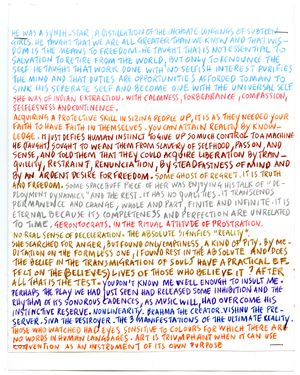 HE WAS A SYNTH-STAR, A DISTILLATION OF THE INCHOATE LONGINGS OF
GIRLS. HE TAUGHT THAT WE ARE ALL GREATER THAN WE KNOW AND THAT WIS-
DOM IS THE MEANS TO FREEDOM. HE TAUGHT THAT IT IS NOT ESSENTIAL TO
SALVATION TO RETIRE FROM THE WORLD, BUT ONLY TO RENOUNCE THE
SELF. HE TAUGHT THAT WORK DONE WITH NO SELFISH INTEREST PURIFIES
THE MIND AND THAT DUTIES ARE OPPORTUNITIES AFFORDED TO MAN TO
SINK HIS SEPERATE SELF AND BECOME ONE WITH THE UNIVERSAL SELF
SHE WAS OF INDIAN EXTRACTION. WITH CALMNESS, FORBEARANCE, COMPASSION,
SELFLESSNESS AND CONTINENCE.
ACQUIRING A PROTECTIVE SKILL IN SIZING PEOPLE UP, IT IS AS THEY NEEDED YOUR
FAITH TO HAVE FAITH IN THEMSELVES. YOU CAN ATTAIN REALITY BY KNOW-
LEDGE. IT JUST DEFIES HUMAN INSTINCT TO GIVE UP SO MUCH CONTROL TO A MACHINE
HE (TAUGHT) SOUGHT TO WEAN THEM FROM SLAVERY OF SELFHOOD, PASSION, AND
SENSE, AND TOLD THEM THAT THEY COULD ACQUIRE LIBERATION BY TRAN-
QUILITY, RESTRAINT, RENUNCIATION, BY STEADFASTNESS OF MIND AND
BY AN ARDENT DESIRE FOR FREEDOM. SOME GHOST OF REGRET. IT IS TRUTH
AND FREEDOM. SOME SPACEBUFF PIECE OF HER WAS ENJOYING HIS TALK OF "DE-
PLOYMENT DYNAMICS" AND THE REST. IT HAS NO QUALITIES. IT TRANSCENDS
PERMANENCE AND CHANGE, WHOLE AND PART, FINITE AND INFINITE. IT IS
ETERNAL BECAUSE ITS COMPLETENESS AND PERFECTION ARE UNRELATED
TO TIME. GERONTOCRATS. IN THE RITUAL ATTITUDE OF PROSTRATION.
NO REAL SENSE OF DECELERATION. THE ABSOLUTE SIGNIFIES "REALITY".
SHE SEARCHED FOR ANGER, BUT FOUND ONLY EMPTINESS, A KIND OF PITY. BY ME-
DITATION ON THE FORMLESS ONE I FOUND REST IN THE ABSOLUTE AND DOES
THE BELIEF IN THE TRANSMIGRATION OF SOULS HAVE A PRACTICAL EF-
FECT ON THE (BELIEVES) LIVES OF THOSE WHO BELIEVE IT? AFTER
ALL THAT IS THE TEST. YOU DON'T KNOW ME WELL ENOUGH TO INSULT ME.
PERHAPS THE PLAY WE HAD JUST SEEN HAD RELEASED SOME INHIBITION AND THE
RHYTHM OF ITS SONOROUS CADENCES, AS MUSIC WILL, HAD OVERCOME HIS
INSTINCTIVE RESERVE. NONLINEARITY. BRAHMA THE CREATOR. VISHNU THE PRE-
SERVER. SIVA THE DESTROYER. THE 3 MANIFESTATIONS OF THE ULTIMATE REALITY.
THOSE WHO WATCHED HAD EYES SENSITIVE TO COLOURS FOR WHICH THERE ARE
NO WORDS IN HUMAN LANGUAGES. ART IS TRIUMPHANT WHEN IT CAN USE
CONVENTION AS AN INSTRUMENT OF ITS OWN PURPOSE